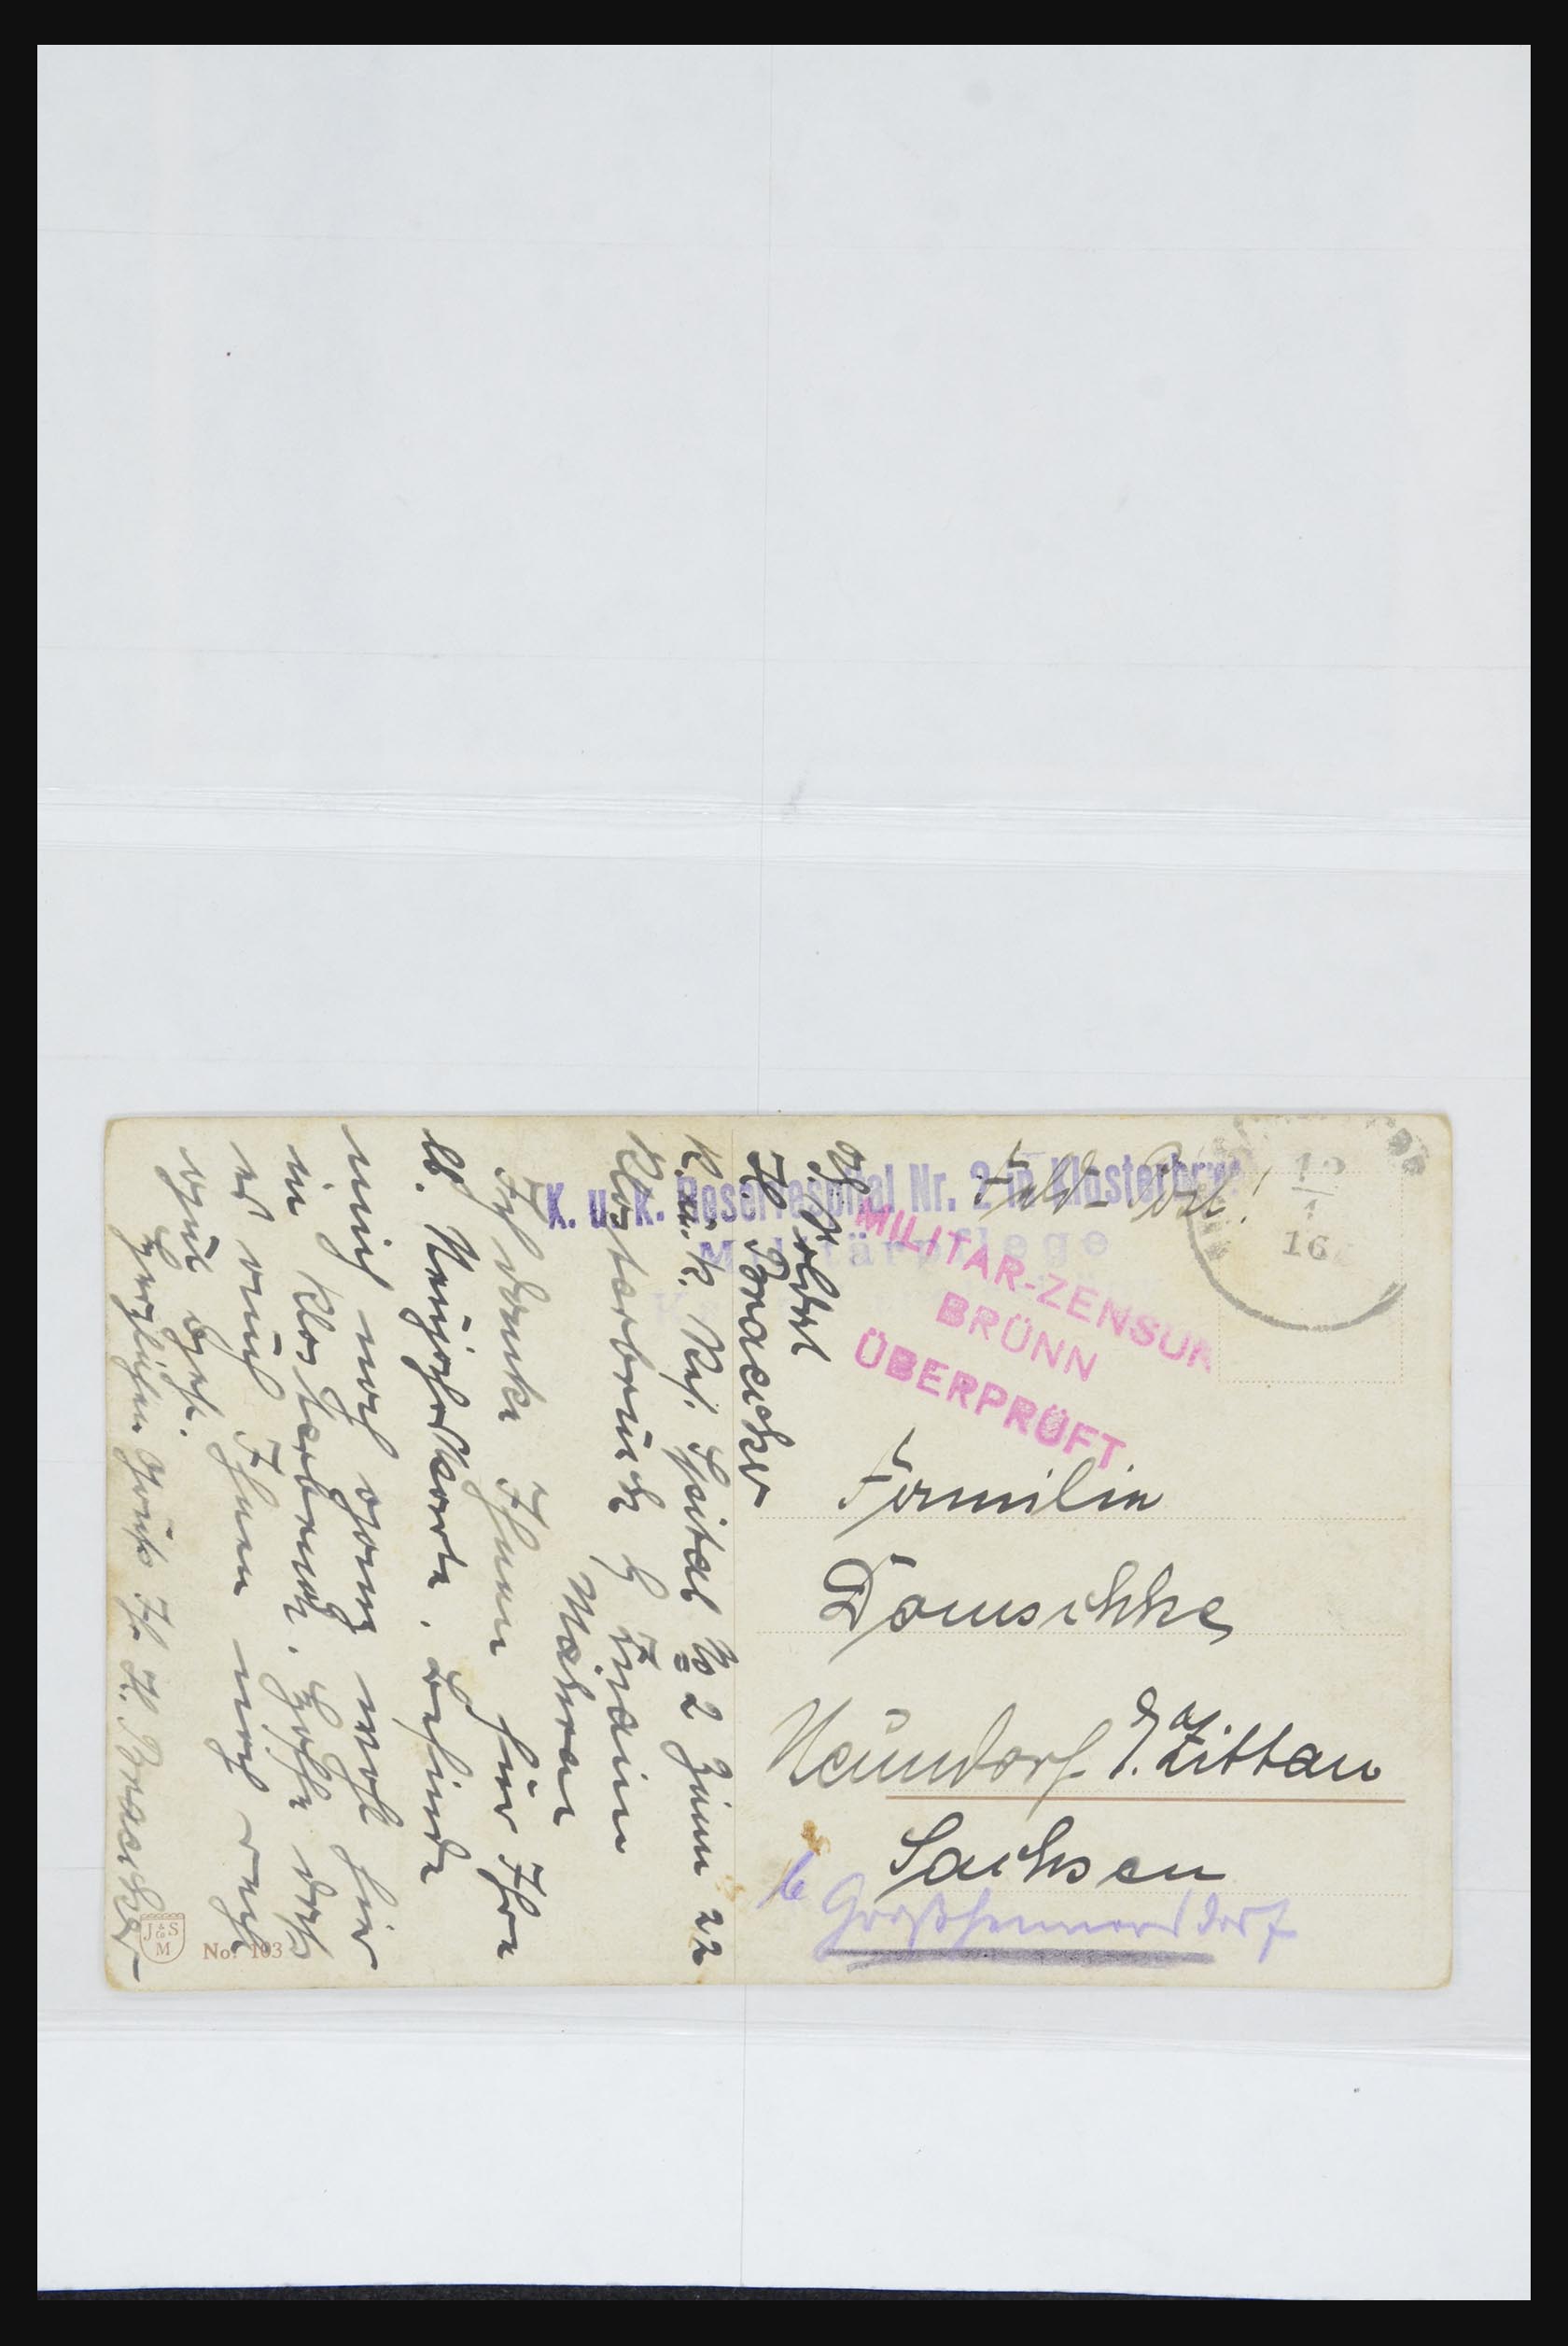 Feld-Post!
K. u. K. Reservespital Nr. 2 in Klosterbruck
Militärpflege
MILITÄR-ZENSUR
BRÜNN
ÜBERPRÜFT
16
Familie
Domschke
Neundorf Zittau
Sachsen
b Großhennersdorf
Abs. Soldat
H. Bracker
K. u. K. Res. Spital No 2 Zimm 22
Klosterbruck b Znaim
Mähren
Ich danke Ihnen für Ihre
lb. Neujahrskarte. Befinde
mich noch ganz wohl hier
in Klosterbruck. Hoffe daß
es auch Ihnen noch recht
gut geht.
Herzlichen Gruß Ihr H. Bracker
J & S
M
No. 103